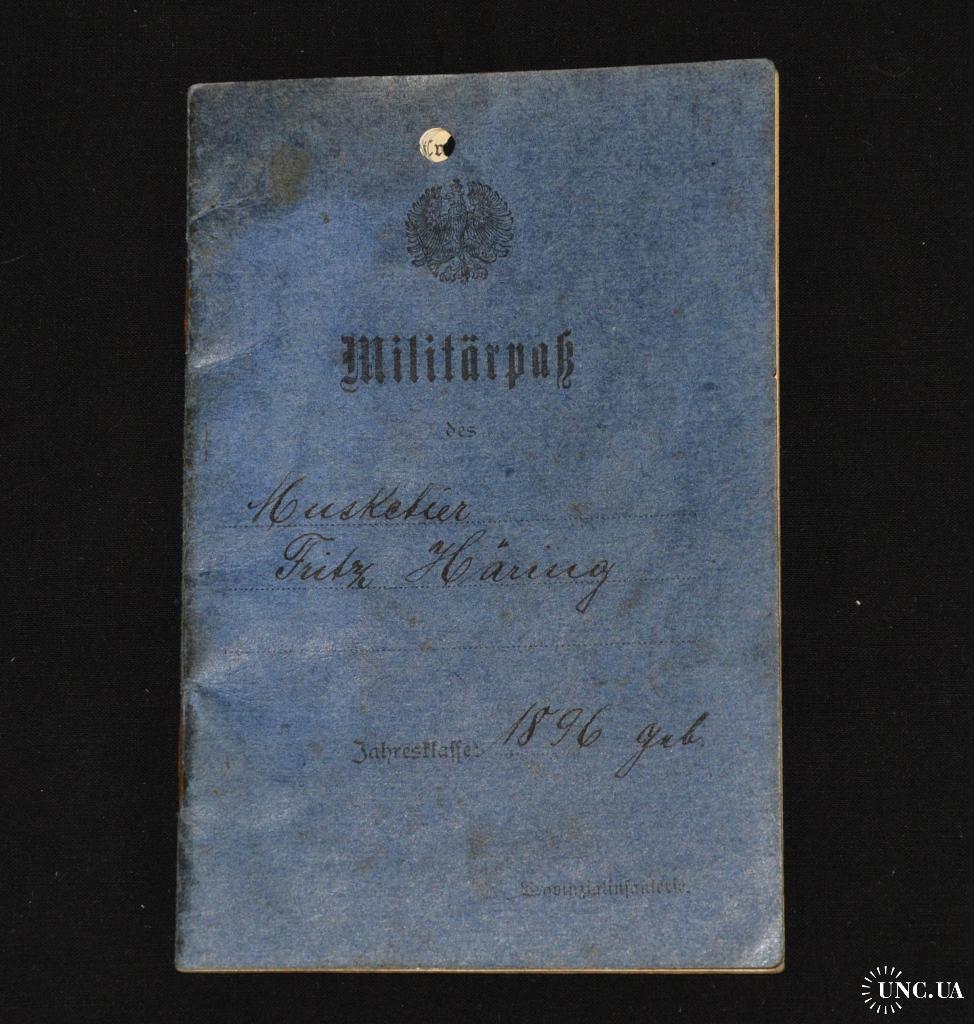 Militärpaß
des
Musketier
Fritz Häring
Jahresklasse: 1896 geb.
Provinzialinfanterie.
UNC.UA